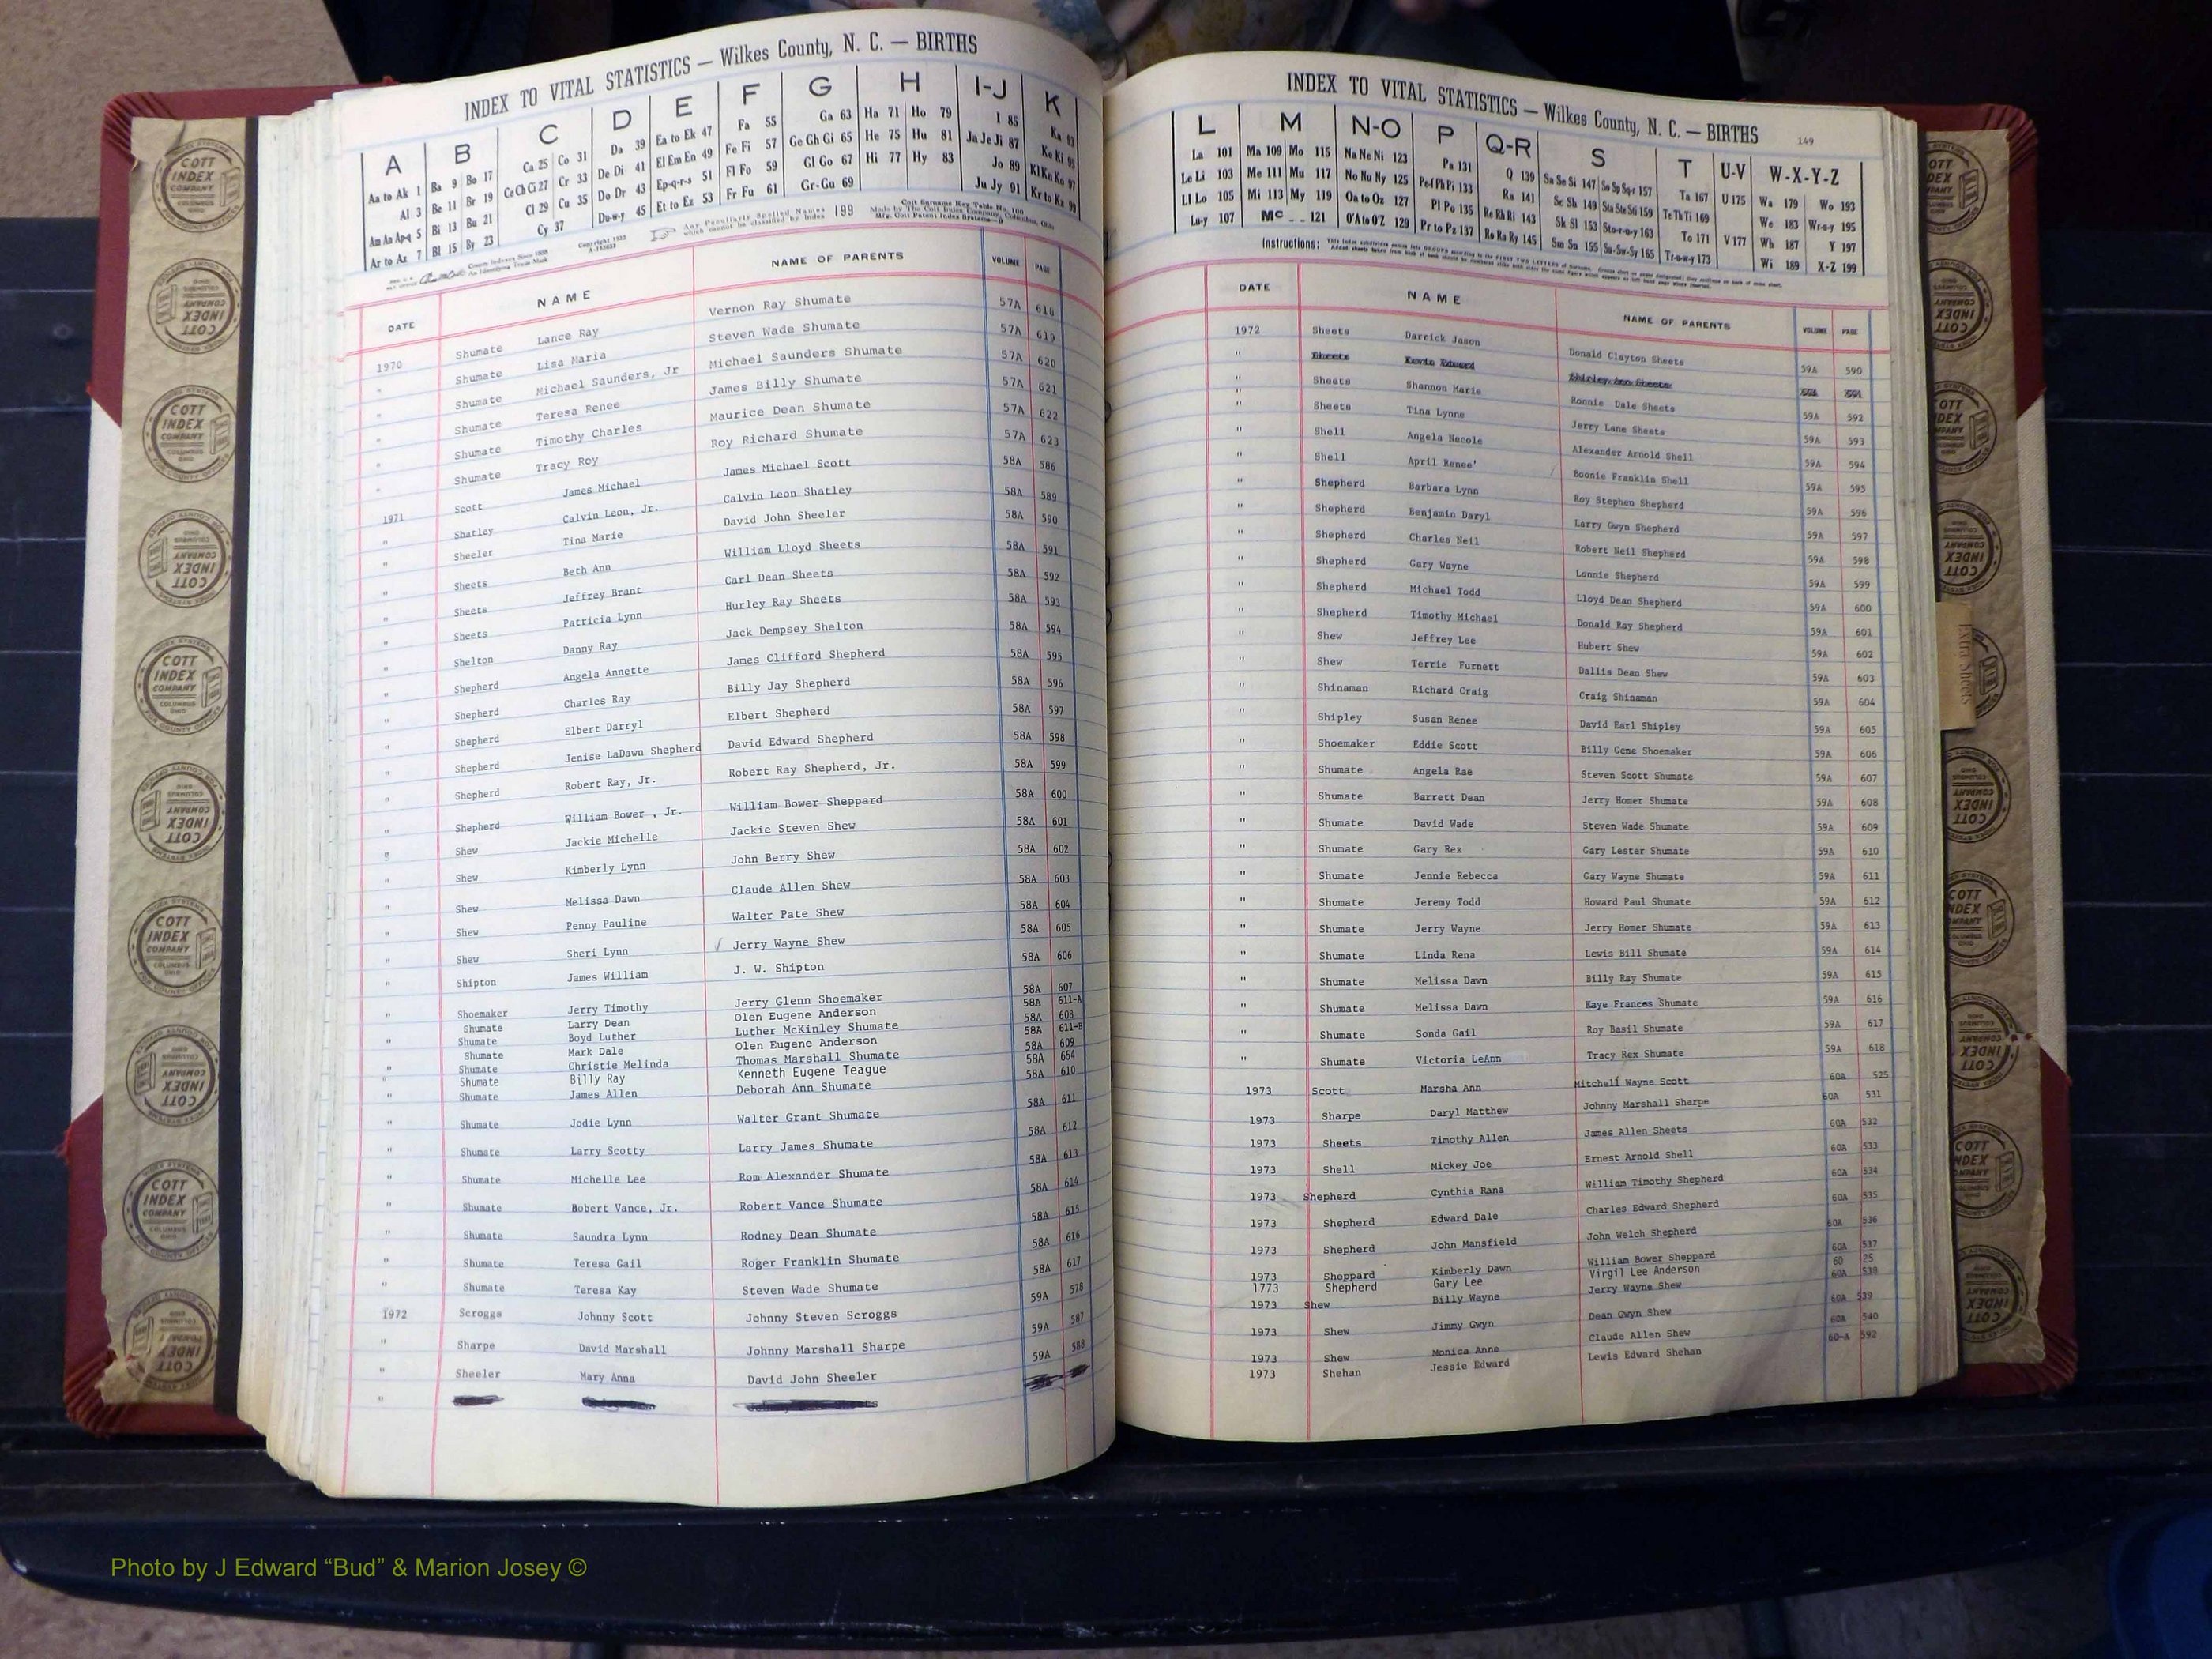 INDEX TO VITAL STATISTICS — Wilkes County, N. C. — BIRTHS
A B C D E F G H I-J K
Aa to Ak 1 Ba 9 Bo 17 Ca 25 Co 31 Da 39 Ea to Ek 47 Fa 55 Ga 63 Ha 71 Ho 79 I 85 Ka 93
Al 3 Be 11 Br 19 Ce Ch Ci 27 Cr 33 De Di 41 El Em En 49 Fe Fi 57 Ge Gh Gi 65 He 75 Hu 81 Ja Je Ji 87 Ke Ki 95
Am An Ap-q 5 Bi 13 Bu 21 Cl 29 Cu 35 Do Dr 43 Ep-q-r-s 51 Fl Fo 59 Gl Go 67 Hi 77 Hy 83 Jo 89 Kl Kn Ko 97
Ar to Az 7 Bl 15 By 23 Cy 37 Du-w-y 45 Et to Ez 53 Fr Fu 61 Gr-Gu 69 Ju Jy 91 Kr to Kz 99
Any Peculiarly Spelled Names which cannot be classified by Index 199
DATE NAME NAME OF PARENTS VOLUME PAGE
1970 Shumate Lance Ray Vernon Ray Shumate 57A 618
" Shumate Lisa Maria Steven Wade Shumate 57A 619
" Shumate Michael Saunders, Jr Michael Saunders Shumate 57A 620
" Shumate Teresa Renee James Billy Shumate 57A 621
" Shumate Timothy Charles Maurice Dean Shumate 57A 622
" Shumate Tracy Roy Roy Richard Shumate 57A 623
1971 Scott James Michael James Michael Scott 58A 586
" Shatley Calvin Leon, Jr. Calvin Leon Shatley 58A 589
" Sheeler Tina Marie David John Sheeler 58A 590
" Sheets Beth Ann William Lloyd Sheets 58A 591
" Sheets Jeffrey Brant Carl Dean Sheets 58A 592
" Sheets Patricia Lynn Hurley Ray Sheets 58A 593
" Shelton Danny Ray Jack Dempsey Shelton 58A 594
" Shepherd Angela Annette James Clifford Shepherd 58A 595
" Shepherd Charles Ray Billy Jay Shepherd 58A 596
" Shepherd Elbert Darryl Elbert Shepherd 58A 597
" Shepherd Jenise LaDawn Shepherd David Edward Shepherd 58A 598
" Shepherd Robert Ray, Jr. Robert Ray Shepherd, Jr. 58A 599
" Shepherd William Bower , Jr. William Bower Sheppard 58A 600
" Shew Jackie Michelle Jackie Steven Shew 58A 601
" Shew Kimberly Lynn John Berry Shew 58A 602
" Shew Melissa Dawn Claude Allen Shew 58A 603
" Shew Penny Pauline Walter Pate Shew 58A 604
" Shew Sheri Lynn Jerry Wayne Shew 58A 605
" Shipton James William J. W. Shipton 58A 606
" Shoemaker Jerry Timothy Jerry Glenn Shoemaker 58A 607
Shumate Larry Dean Olen Eugene Anderson 58A 611-A
" Shumate Boyd Luther Luther McKinley Shumate 58A 608
Shumate Mark Dale Olen Eugene Anderson 58A 611-B
" Shumate Christie Melinda Thomas Marshall Shumate 58A 609
" Shumate Billy Ray Kenneth Eugene Teague 58A 654
" Shumate James Allen Deborah Ann Shumate 58A 610
" Shumate Jodie Lynn Walter Grant Shumate 58A 611
" Shumate Larry Scotty Larry James Shumate 58A 612
" Shumate Michelle Lee Rom Alexander Shumate 58A 613
" Shumate Robert Vance, Jr. Robert Vance Shumate 58A 614
" Shumate Saundra Lynn Rodney Dean Shumate 58A 615
" Shumate Teresa Gail Roger Franklin Shumate 58A 616
" Shumate Teresa Kay Steven Wade Shumate 58A 617
1972 Scroggs Johnny Scott Johnny Steven Scroggs 59A 578
" Sharpe David Marshall Johnny Marshall Sharpe 59A 587
" Sheeler Mary Anna David John Sheeler 59A 588
"
INDEX TO VITAL STATISTICS — Wilkes County, N. C. — BIRTHS 149
L M N-O P Q-R S T U-V W-X-Y-Z
La 101 Ma 109 Mo 115 Na Ne Ni 123 Pa 131 Q 139 Sa Se Si 147 So Sp Sq-r 157 Ta 167 U 175 Wa 179 Wo 193
Le Li 103 Me 111 Mu 117 No Nu Ny 125 Pe-f Ph Pi 133 Ra 141 Sc Sh 149 Sta Ste Sti 159 Te Th Ti 169 We 183 Wr-o-y 195
Ll Lo 105 Mi 113 My 119 Oa to Oz 127 Pl Po 135 Re Rh Ri 143 Sk Sl 153 Sto-r-u-y 163 To 171 V 177 Wh 187 Y 197
Lu-y 107 Mc 121 O'A to O'Z 129 Pr to Ps 137 Ro Ru Ry 145 Sm Sn 155 Su-Sw-Sy 165 Tr-u-w-y 173 Wi 189 X-Z 199
DATE NAME NAME OF PARENTS VOLUME PAGE
1972 Sheets Darrick Jason Donald Clayton Sheets 59A 590
" Sheets Kevin Edward Shirley Ann Sheets 59A 591
" Sheets Shannon Marie Ronnie Dale Sheets 59A 592
" Sheets Tina Lynne Jerry Lane Sheets 59A 593
" Shell Angela Necole Alexander Arnold Shell 59A 594
" Shell April Renee' Boonie Franklin Shell 59A 595
" Shepherd Barbara Lynn Roy Stephen Shepherd 59A 596
" Shepherd Benjamin Daryl Larry Gwyn Shepherd 59A 597
" Shepherd Charles Neil Robert Neil Shepherd 59A 598
" Shepherd Gary Wayne Lonnie Shepherd 59A 599
" Shepherd Michael Todd Lloyd Dean Shepherd 59A 600
" Shepherd Timothy Michael Donald Ray Shepherd 59A 601
" Shew Jeffrey Lee Hubert Shew 59A 602
" Shew Terrie Furnett Dallis Dean Shew 59A 603
" Shinaman Richard Craig Craig Shinaman 59A 604
" Shipley Susan Renee David Earl Shipley 59A 605
" Shoemaker Eddie Scott Billy Gene Shoemaker 59A 606
" Shumate Angela Rae Steven Scott Shumate 59A 607
" Shumate Barrett Dean Jerry Homer Shumate 59A 608
" Shumate David Wade Steven Wade Shumate 59A 609
" Shumate Gary Rex Gary Lester Shumate 59A 610
" Shumate Jennie Rebecca Gary Wayne Shumate 59A 611
" Shumate Jeremy Todd Howard Paul Shumate 59A 612
" Shumate Jerry Wayne Jerry Homer Shumate 59A 613
" Shumate Linda Rena Lewis Bill Shumate 59A 614
" Shumate Melissa Dawn Billy Ray Shumate 59A 615
" Shumate Melissa Dawn Kaye Frances Shumate 59A 616
" Shumate Sonda Gail Roy Basil Shumate 59A 617
" Shumate Victoria LeAnn Tracy Rex Shumate 59A 618
1973 Scott Marsha Ann Mitchell Wayne Scott 60A 525
1973 Sharpe Daryl Matthew Johnny Marshall Sharpe 60A 531
1973 Sheets Timothy Allen James Allen Sheets 60A 532
1973 Shell Mickey Joe Ernest Arnold Shell 60A 533
1973 Shepherd Cynthia Rana William Timothy Shepherd 60A 534
1973 Shepherd Edward Dale Charles Edward Shepherd 60A 535
1973 Shepherd John Mansfield John Welch Shepherd 60A 536
1973 Sheppard Kimberly Dawn William Bower Sheppard 60A 537
1773 Shepherd Gary Lee Virgil Lee Anderson 60 25
1973 Shew Billy Wayne Jerry Wayne Shew 60A 538
1973 Shew Jimmy Gwyn Dean Gwyn Shew 60A 539
1973 Shew Monica Anne Claude Allen Shew 60A 540
1973 Shehan Jessie Edward Lewis Edward Shehan 60-A 592
Extra Sheets
Photo by J Edward “Bud” & Marion Josey ©